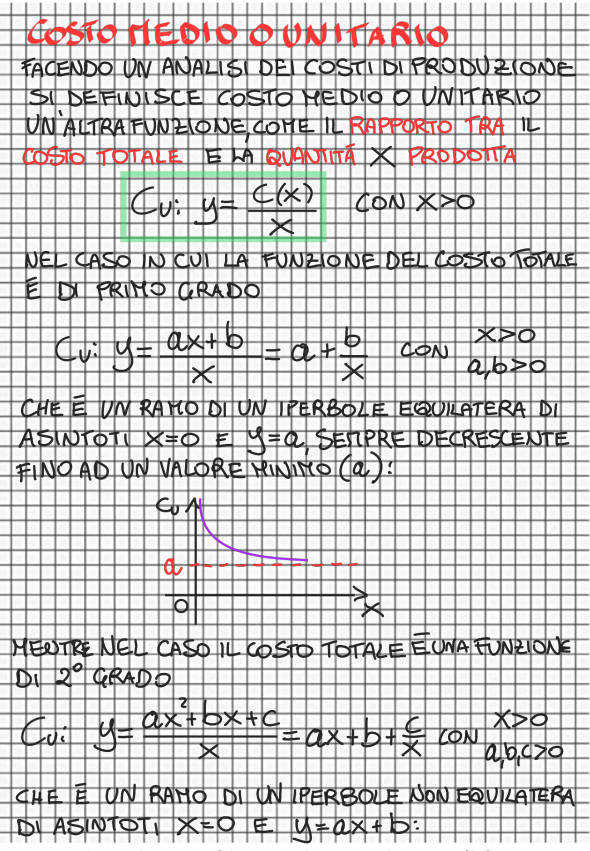 COSTO MEDIO O UNITARIO
FACENDO UN ANALISI DEI COSTI DI PRODUZIONE
SI DEFINISCE COSTO MEDIO O UNITARIO
UN'ALTRA FUNZIONE, COME IL RAPPORTO TRA IL
COSTO TOTALE E LA QUANTITÀ X PRODOTTA
Cu: y = C(x)/x CON X>0
NEL CASO IN CUI LA FUNZIONE DEL COSTO TOTALE
È DI PRIMO GRADO
Cu: y = ax+b/x = a + b/x CON X>0 a,b>0
CHE È UN RAMO DI UN IPERBOLE EQUILATERA DI
ASINTOTI X=0 E y=a, SEMPRE DECRESCENTE
FINO AD UN VALORE MINIMO (a):
Cu
a
O
X
MENTRE NEL CASO IL COSTO TOTALE È UNA FUNZIONE
DI 2° GRADO
Cu: y = ax²+bx+c/x = ax+b+c/x CON X>0 a,b,c>0
CHE È UN RAMO DI UN IPERBOLE NON EQUILATERA
DI ASINTOTI X=0 E y=ax+b: